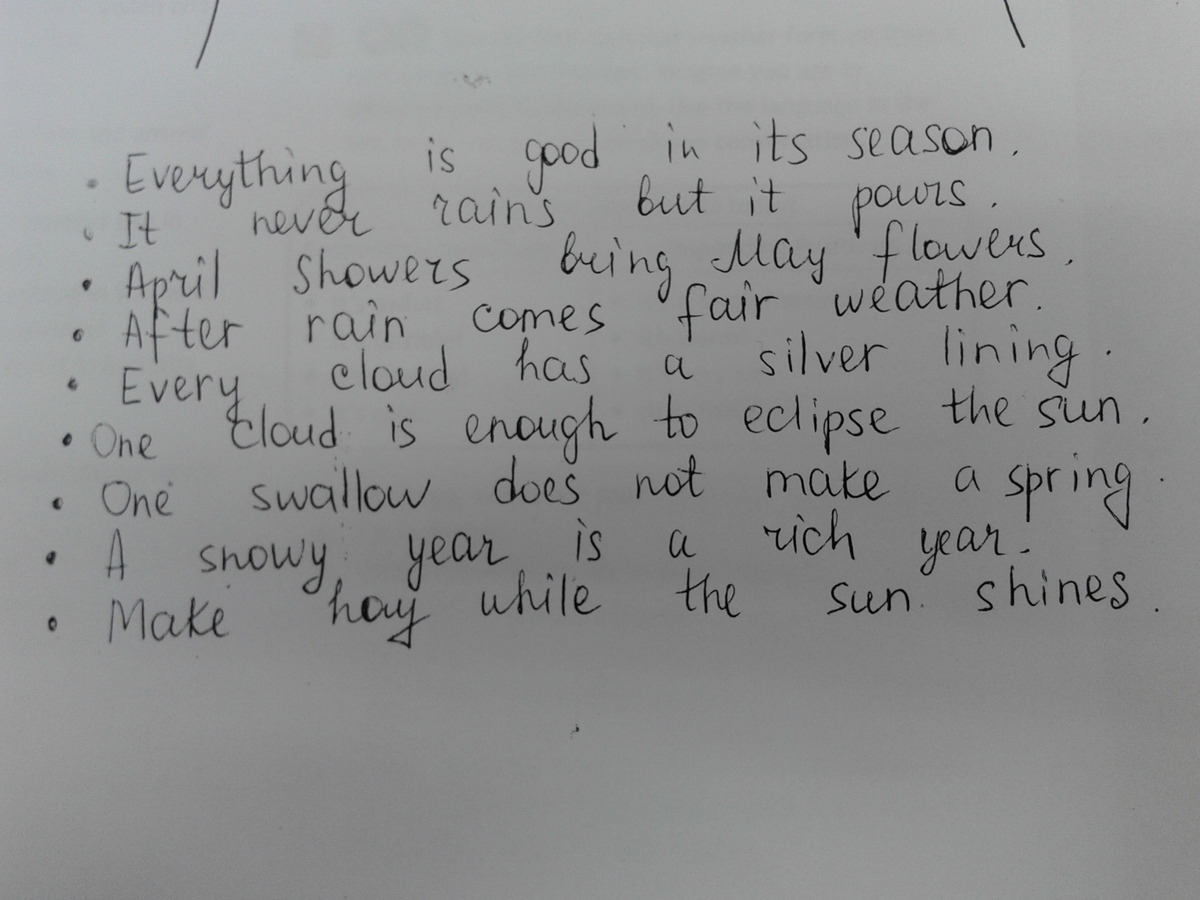 • Everything is good in its season.
• It never rains but it pours.
• April Showers bring May flowers.
• After rain comes fair weather.
• Every cloud has a silver lining.
• One cloud is enough to eclipse the sun.
• One swallow does not make a spring.
• A snowy year is a rich year.
• Make hay while the sun shines.